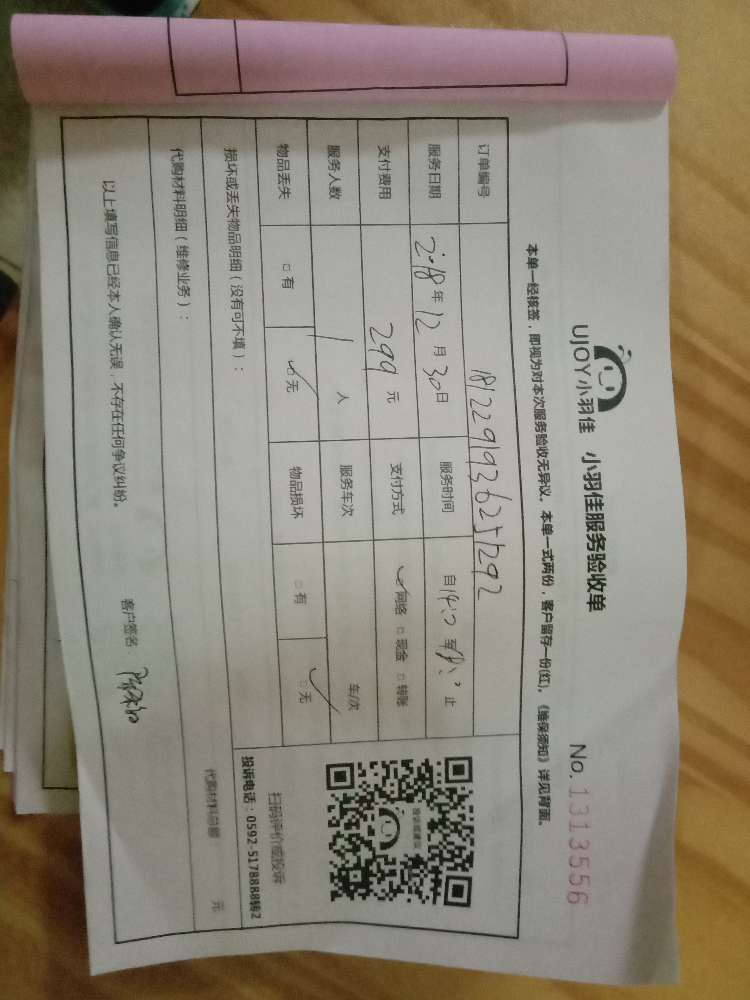 UJOY小羽佳 小羽佳服务验收单
No. 1313556
本单一经核签，即视为对本次服务验收无异议，本单一式两份，客户留存一份(红)，《维保须知》详见背面。
订单编号 1812291936251292
服务日期 2018年12月30日 服务时间 自14:0至18:0止
支付费用 299元 支付方式 ✓网络 □现金 □转账
服务人数 1人 服务车次 车/次
物品丢失 □有 ☑无 物品损坏 □有 ☑无
损坏或丢失物品明细（没有可不填）：
投诉或建议
扫码评价或投诉
投诉电话：0592-5178888转2
代购材料明细（维修业务）：
代购材料总额 元
以上填写信息已经本人确认无误，不存在任何争议纠纷。
客户签名：